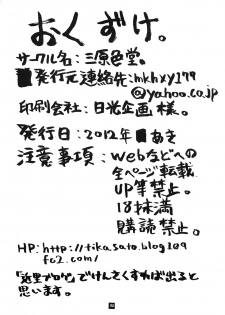 おくずけ。
サークル名:三原色堂。
発行元連絡先:mkhxy179
@yahoo.co.jp
印刷会社:日光企画様。
発行日:2012年 あき
注意事項:webなどへの
全ページ転載
UP等禁止。
18抹満
購読禁止。
HP:http://tikasato.blog109
fc2.com/
「近里ブログ」でけんさくすれば出ると
思います。